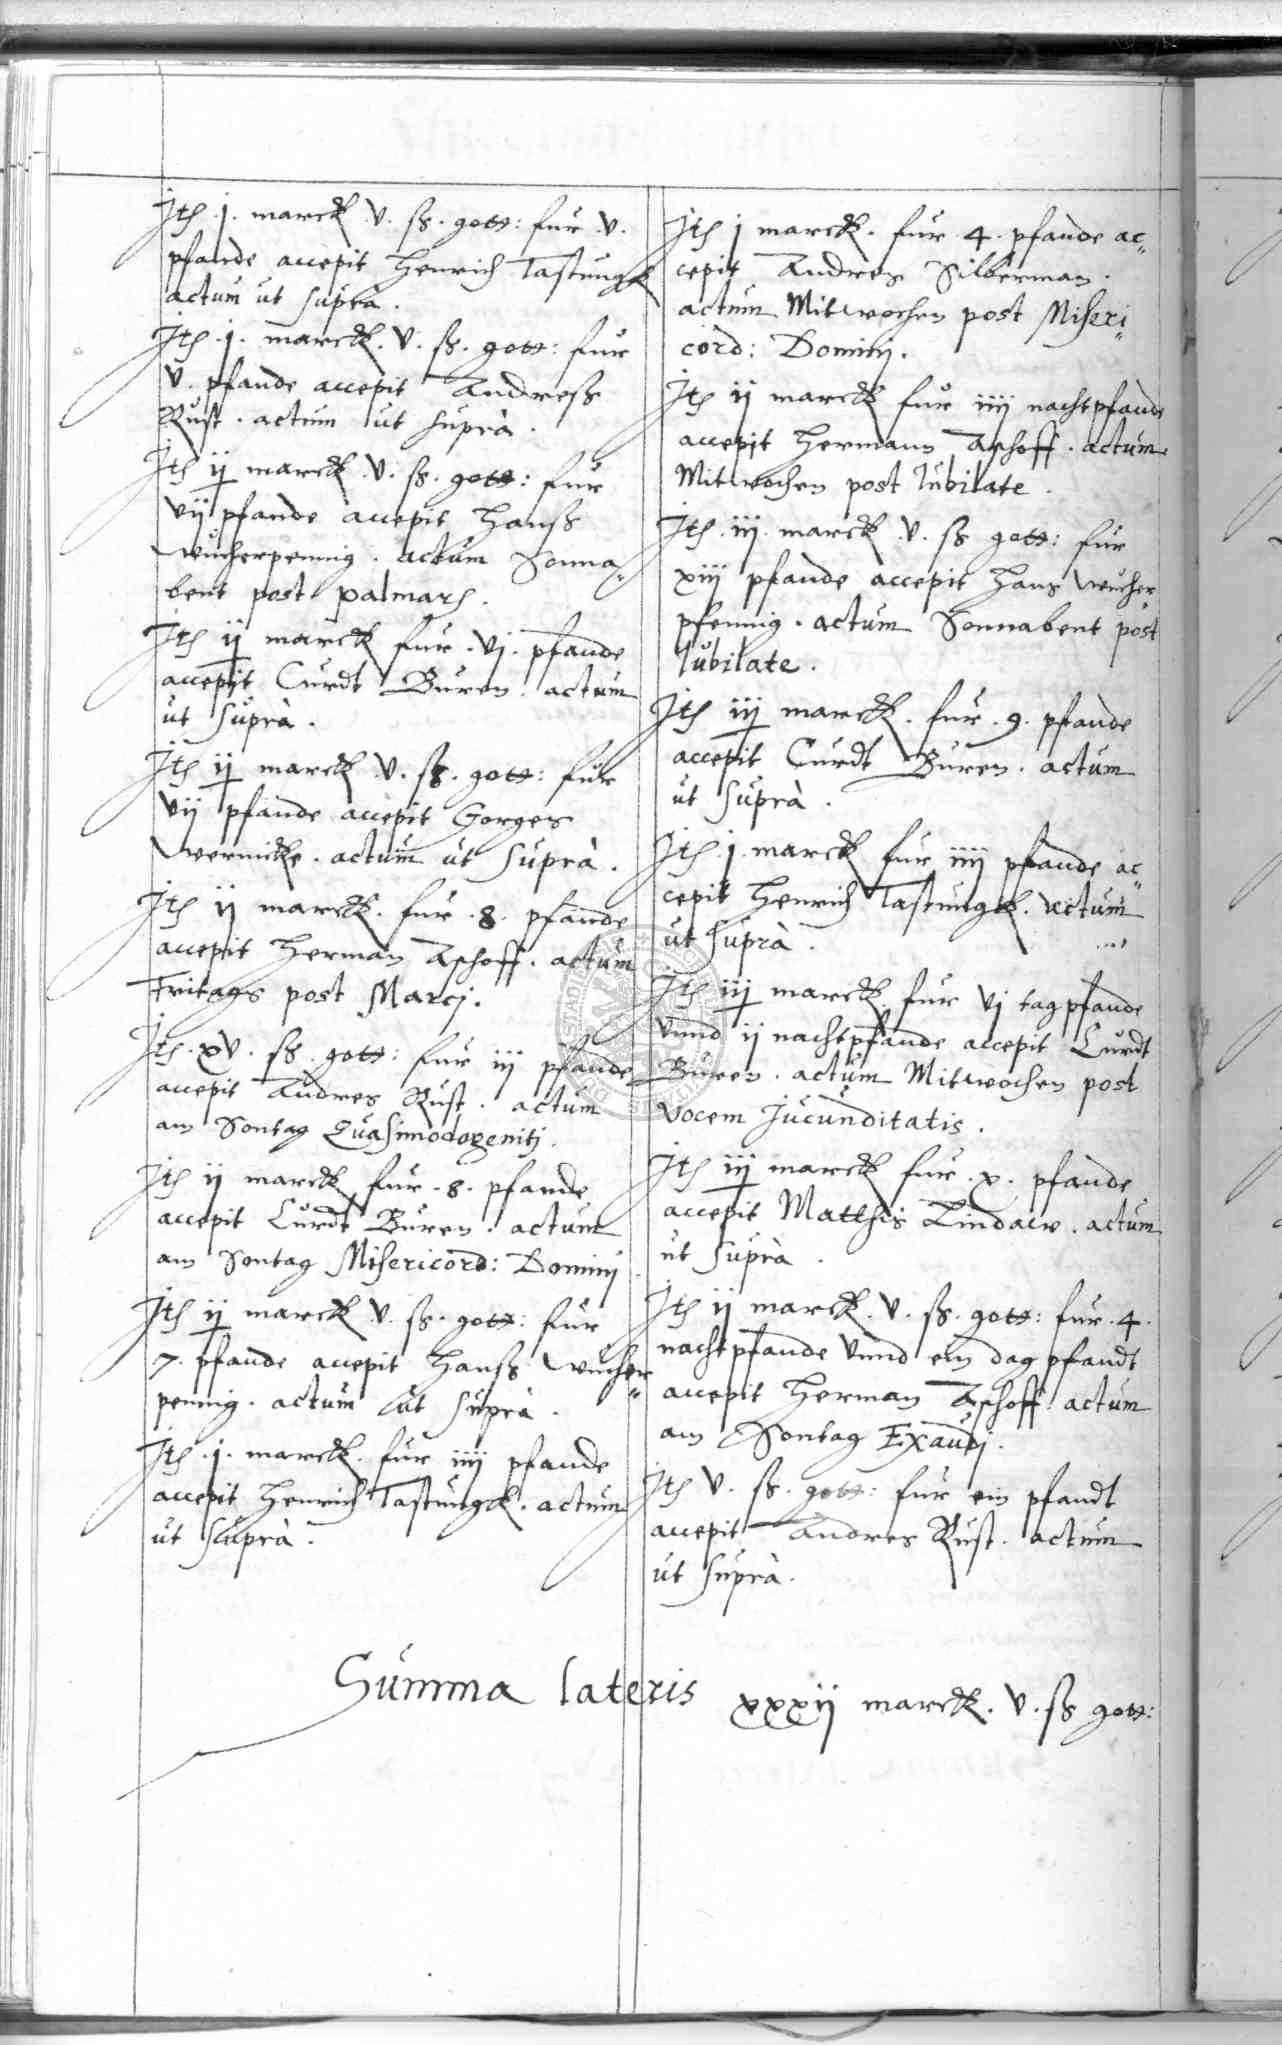 Itē .j. marck v. ß. gott: fur .v.
pfande accepit Henrich Tastungk
actum ut suprà.
Itē .j. marck. v. ß. gott: fur
v. pfande accepit Andreß
Rust. actum ut suprà.
Itē ij marck v. ß. gott: fur
vij pfande accepit Hanß
Wucherpennig. actum Sonna„
bent post palmarū.
Itē ij marck fur .vj. pfande
accepit Curdt Buren. actum
ut suprà.
Itē ij marck v. ß. gott: fur
vij pfande accepit Gorges
Wernicke. actum ut suprà.
Itē ij marck. fur .8. pfande
accepit Herman Aschoff. actum
Fritags post Marcj.
Itē .xv. ß. gott: fur iij pfande
accepit Andres Rust. actum
am Sontag Quasimodogenitj.
Itē ij marck fur .8. pfande
accepit Curdt Buren. actum
am Sontag Misericord: Dominj.
Itē ij marck v. ß. gott: fur
7. pfande accepit Hanß Wucher„
pennig. actum ut suprà.
Itē .j. marck. fur iiij pfande
accepit Henrich Tastungk. actum
ut suprà.
Itē j marck. fur .4. pfande ac„
cepit Andres Silberman.
actum Mitwochen post Miseri„
cord: Dominj.
Itē ij marck fur iiij nachtpfande
accepit Hermann Aschoff. actum
Mitwochen post Iubilate.
Itē .iij. marck v. ß gott: fur
xiij pfande accepit Hans Wucher„
pfennig. actum Sonnabent post
Iubilate.
Itē iij marck. fur .9. pfande
accepit Curdt Buren. actum
ut suprà.
Itē .j. marck fur iiij pfande ac„
cepit Henrich Tastungk. actum
ut suprà.
Itē iij marck fur vj tagpfande
vnnd ij nachtpfande accepit Curdt
Buren. actum Mitwochen post
Vocem Jucunditatis.
Itē iij marck fur .x. pfande
accepit Matthis Lindaw. actum
ut suprà.
Itē ij marck. v. ß. gott: fur .4.
nachtpfande vnnd ein dag pfandt
accepit Herman Aschoff actum
am Sontag Exaudj.
Itē v. ß. gott: fur ein pfandt
accepit Andres Rust. actum
ut suprà.
Summa lateris xxxij marck. v. ß gott: